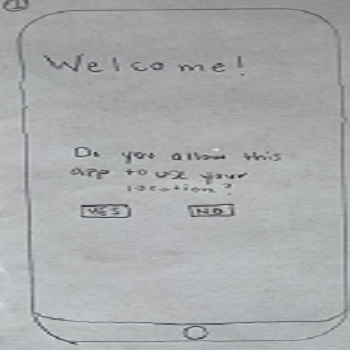 1
Welcome!
Do you allow this
app to use your
location?
YES NO